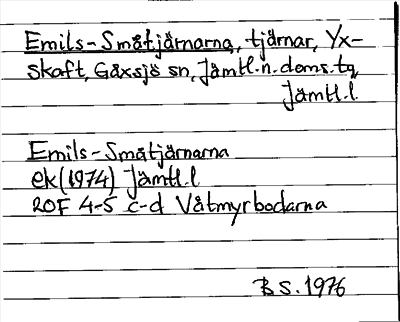 Emils-Småtjärnarna, tjärnar, Yx-
skaft, Gåxsjö sn, Jämtl. n. doms. tg,
Jämtl. l.
Emils-Småtjärnarna
ek (1974) Jämtl. l
20F 4-5 c-d Våtmyrbodarna
B S. 1976